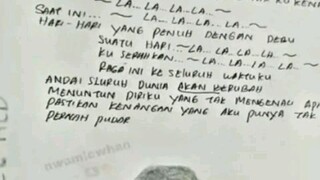 ~ LA... LA.. LA.. LA ~
SAAT INI... ~ LA... LA.. LA.. LA.. LA ~
HARI-HARI YANG PENUH DENGAN DEBU
SUATU HARI ~ LA... LA. LA.. LA ~
KU SERAHKAN... ~ LA... LA.. LA.. LA ~
RAGA INI KE SELURUH WAKTUKU
ANDAI SLURUH DUNIA AKAN BERUBAH
MENUNTUN DIRIKU YANG TAK MENGENAL
PASTIKAN KENANGAN YANG AKU PUNYA TAK
PERNAH PUDAR